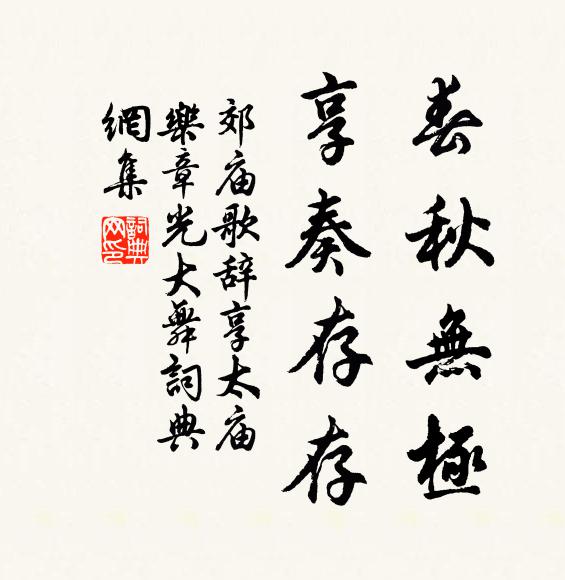 春秋無極
享奏存存
郊庙歌辞享太庙
樂章光大舞詞典
網集
詞典
网印